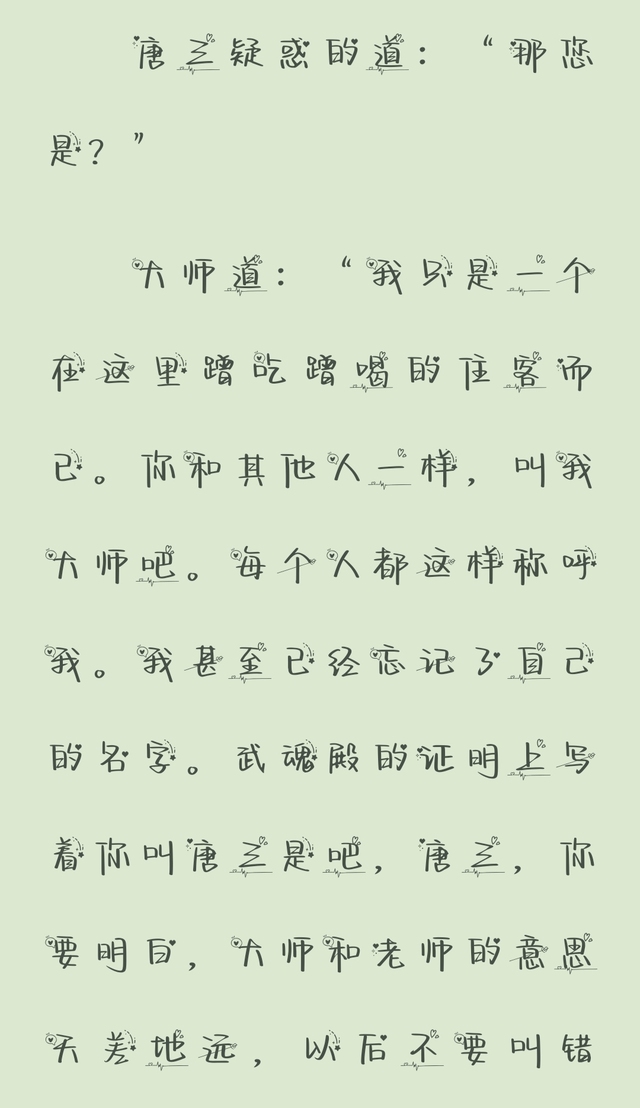 唐三疑惑的道：“那您
是？”
大师道：“我只是一个
在这里蹭吃蹭喝的住客而
已。你和其他人一样，叫我
大师吧。每个人都这样称呼
我。我甚至已经忘记了自己
的名字。武魂殿的证明上写
着你叫唐三是吧，唐三，你
要明白，大师和老师的意思
天差地远，以后不要叫错